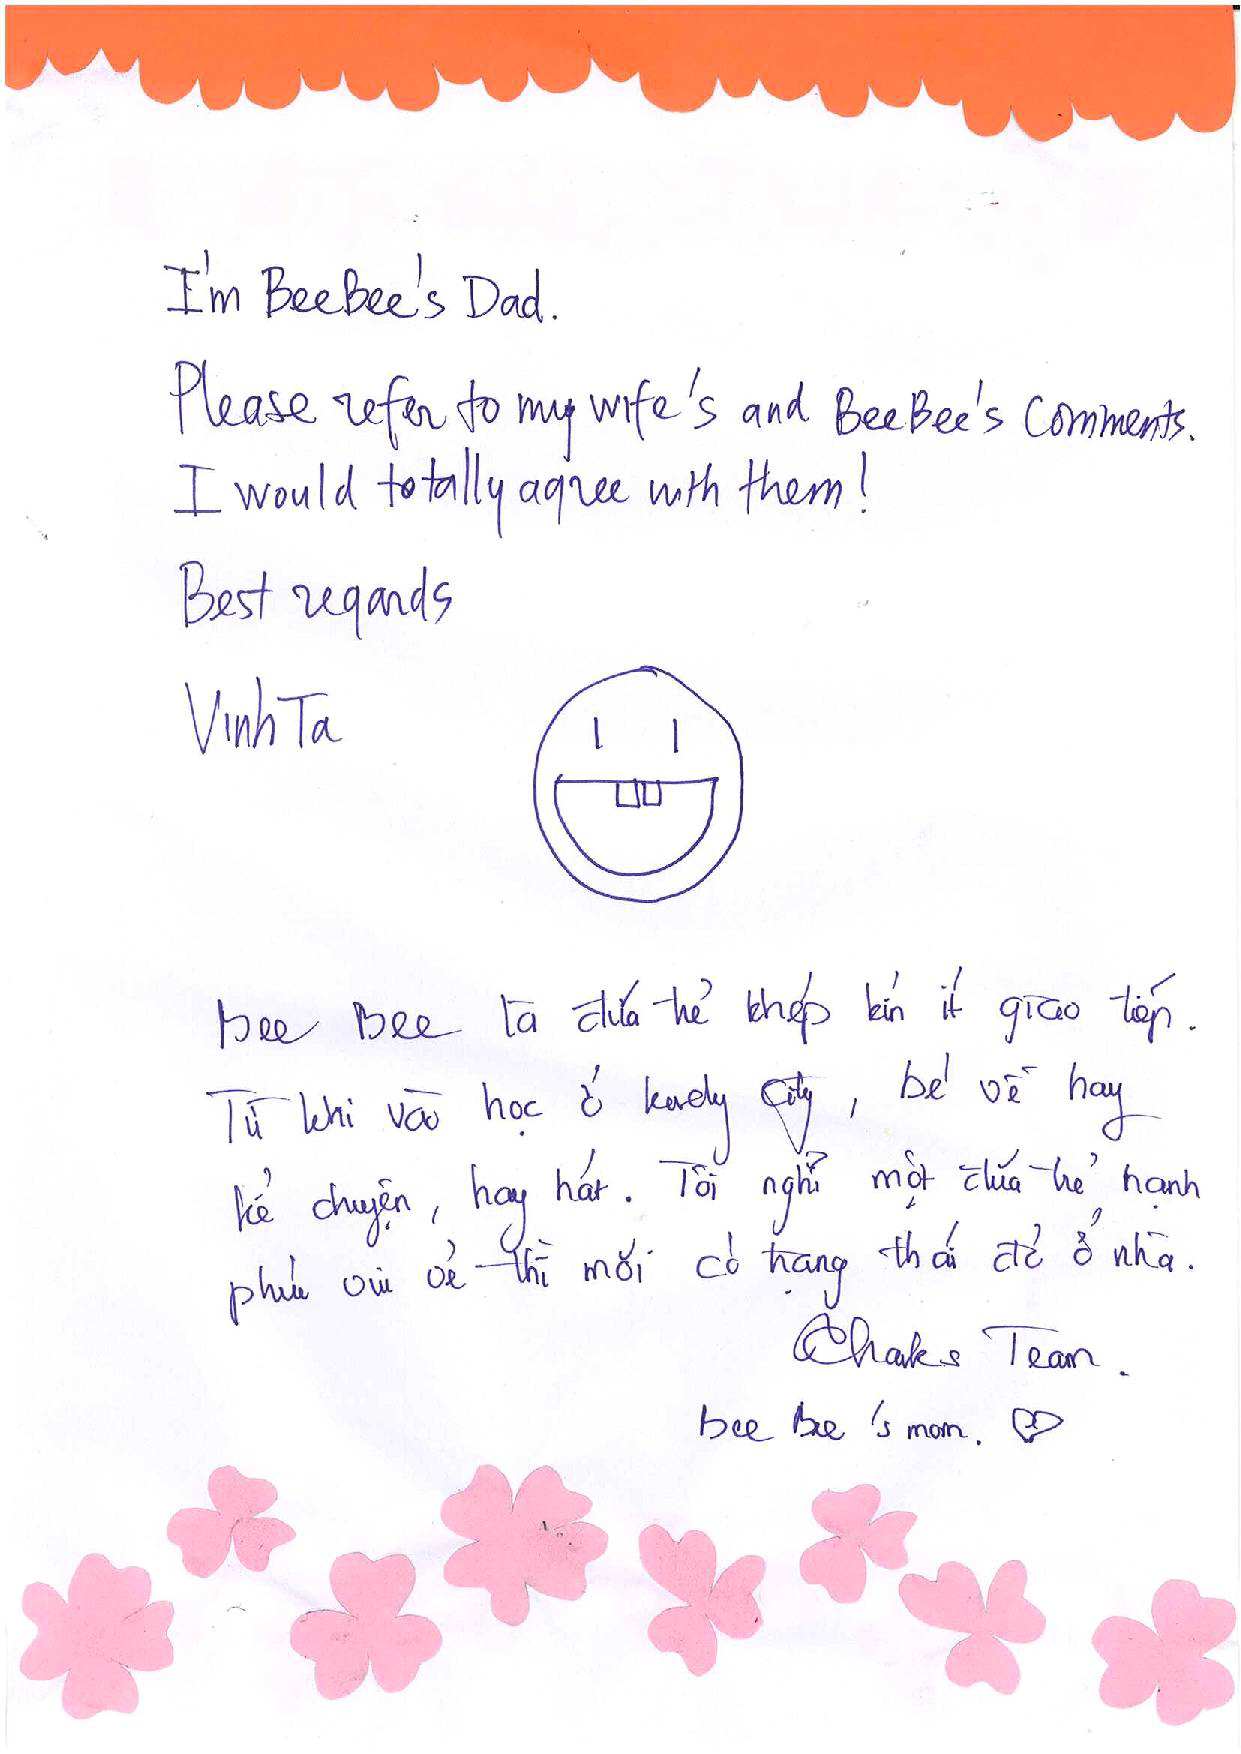 I'm BeeBee's Dad.
Please refer to my wife's and BeeBee's Comments.
I would totally agree with them!
Best regards
Vinh Ta
Bee Bee là đứa trẻ khép kín ít giao tiếp.
Từ khi vào học ở City, bé về hay
kể chuyện, hay hát. Tôi nghĩ một đứa trẻ hạnh
phúc vui vẻ thì mới có trạng thái đó ở nhà.
Team.
Bee Bee's mom.